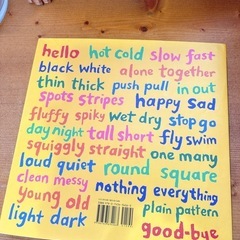 hello hot cold slow fast
black white alone together
thin thick push pull in out
spots stripes happy sad
fluffy spiky wet dry stop go
day night tall short fly swim
squiggly straight one many
loud quiet round square
clean messy nothing everything
young old plain pattern
light dark good-bye